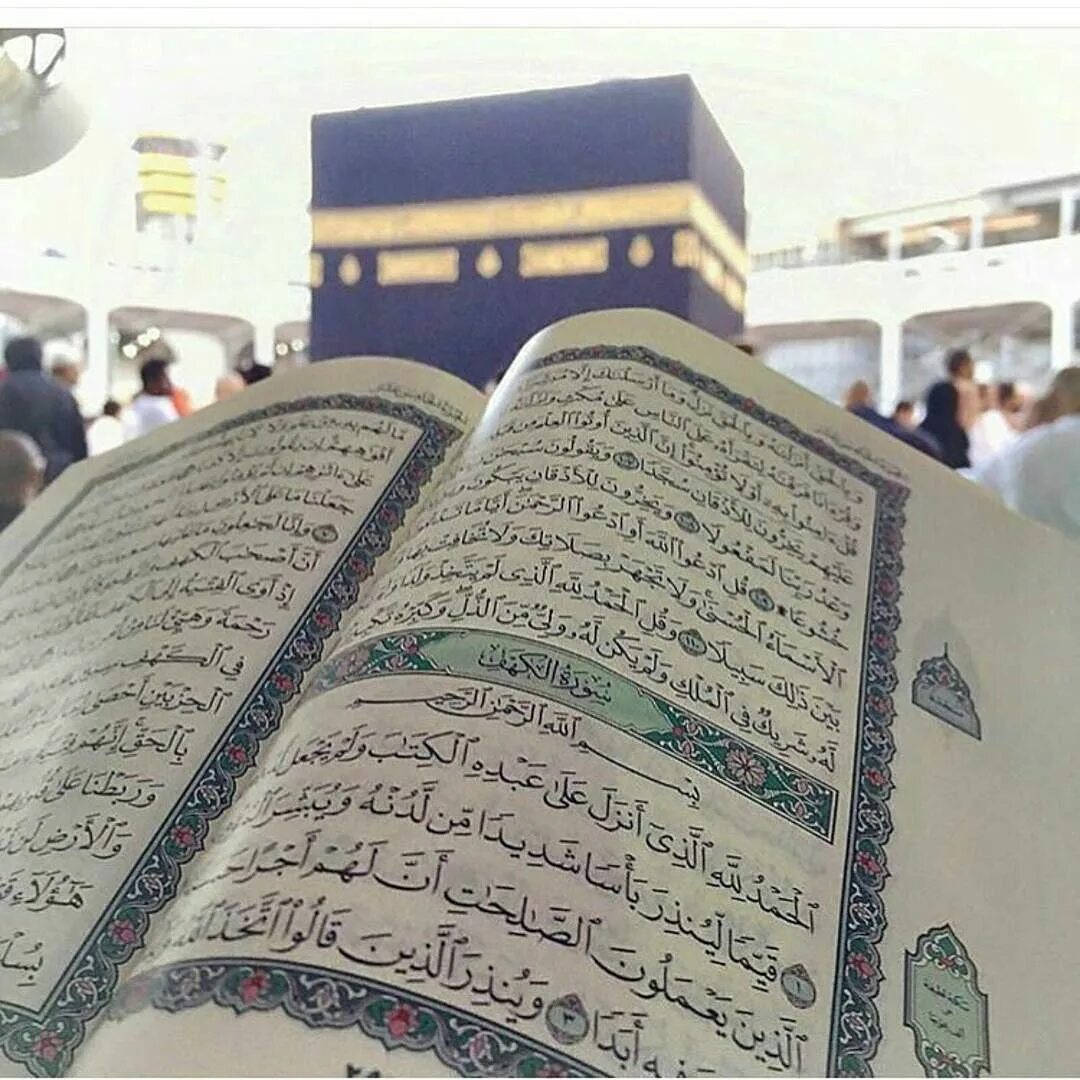 وَبِٱلْحَقِّ أَنزَلْنَٰهُ وَبِٱلْحَقِّ نَزَلَ وَمَآ أَرْسَلْنَٰكَ إِلَّا
وَقُرْءَانًا فَرَقْنَٰهُ لِتَقْرَأَهُۥ عَلَى ٱلنَّاسِ عَلَىٰ مُكْثٍ
قُلْ ءَامِنُوا۟ بِهِۦٓ أَوْ لَا تُؤْمِنُوٓا۟ إِنَّ ٱلَّذِينَ أُوتُوا۟ ٱلْعِلْمَ مِن
عَلَيْهِمْ يَخِرُّونَ لِلْأَذْقَانِ سُجَّدًا ١٠٧ وَيَقُولُونَ
وَعْدُ رَبِّنَا لَمَفْعُولًا ١٠٨ وَيَخِرُّونَ لِلْأَذْقَانِ يَبْكُونَ
خُشُوعًا ١٠٩ قُلِ ٱدْعُوا۟ ٱللَّهَ أَوِ ٱدْعُوا۟ ٱلرَّحْمَٰنَ أَيًّا مَّا
ٱلْأَسْمَآءُ ٱلْحُسْنَىٰ وَلَا تَجْهَرْ بِصَلَاتِكَ وَلَا تُخَافِتْ بِهَا
بَيْنَ ذَٰلِكَ سَبِيلًا ١١٠ وَقُلِ ٱلْحَمْدُ لِلَّهِ ٱلَّذِى لَمْ يَتَّخِذْ وَلَدًا
لَّهُۥ شَرِيكٌ فِى ٱلْمُلْكِ وَلَمْ يَكُن لَّهُۥ وَلِىٌّ مِّنَ ٱلذُّلِّ وَكَبِّرْهُ
سُورَةُ الكَهْفِ
بِسْمِ ٱللَّهِ ٱلرَّحْمَٰنِ ٱلرَّحِيمِ
ٱلْحَمْدُ لِلَّهِ ٱلَّذِىٓ أَنزَلَ عَلَىٰ عَبْدِهِ ٱلْكِتَٰبَ وَلَمْ يَجْعَل
١ قَيِّمًا لِّيُنذِرَ بَأْسًا شَدِيدًا مِّن لَّدُنْهُ وَيُبَشِّرَ
ٱلَّذِينَ يَعْمَلُونَ ٱلصَّٰلِحَٰتِ أَنَّ لَهُمْ أَجْرًا
فِيهِ أَبَدًا ٣ وَيُنذِرَ ٱلَّذِينَ قَالُوا۟ ٱتَّخَذَ
مَّا لَهُم بِهِۦ مِنْ
أَفْوَٰهِهِمْ إِن يَقُولُونَ
عَلَىٰٓ ءَاثَٰرِهِمْ إِن لَّمْ
جَعَلْنَا مَا عَلَى ٱلْأَرْضِ
وَإِنَّا لَجَٰعِلُونَ مَا
أَنَّ أَصْحَٰبَ ٱلْكَهْفِ
إِذْ أَوَى ٱلْفِتْيَةُ إِلَى
رَحْمَةً وَهَيِّئْ لَنَا
فِى ٱلْكَهْفِ
ٱلْحِزْبَيْنِ أَحْصَىٰ
بِٱلْحَقِّ إِنَّهُمْ
وَرَبَطْنَا عَلَىٰ
وَٱلْأَرْضِ لَن
هَٰٓؤُلَآءِ